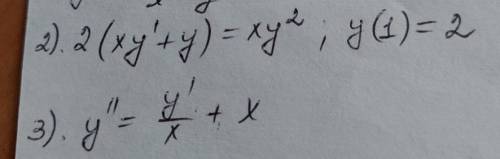 2). 2(xy'+y)=xy²; y(1)=2
3). y''= y'/x + x